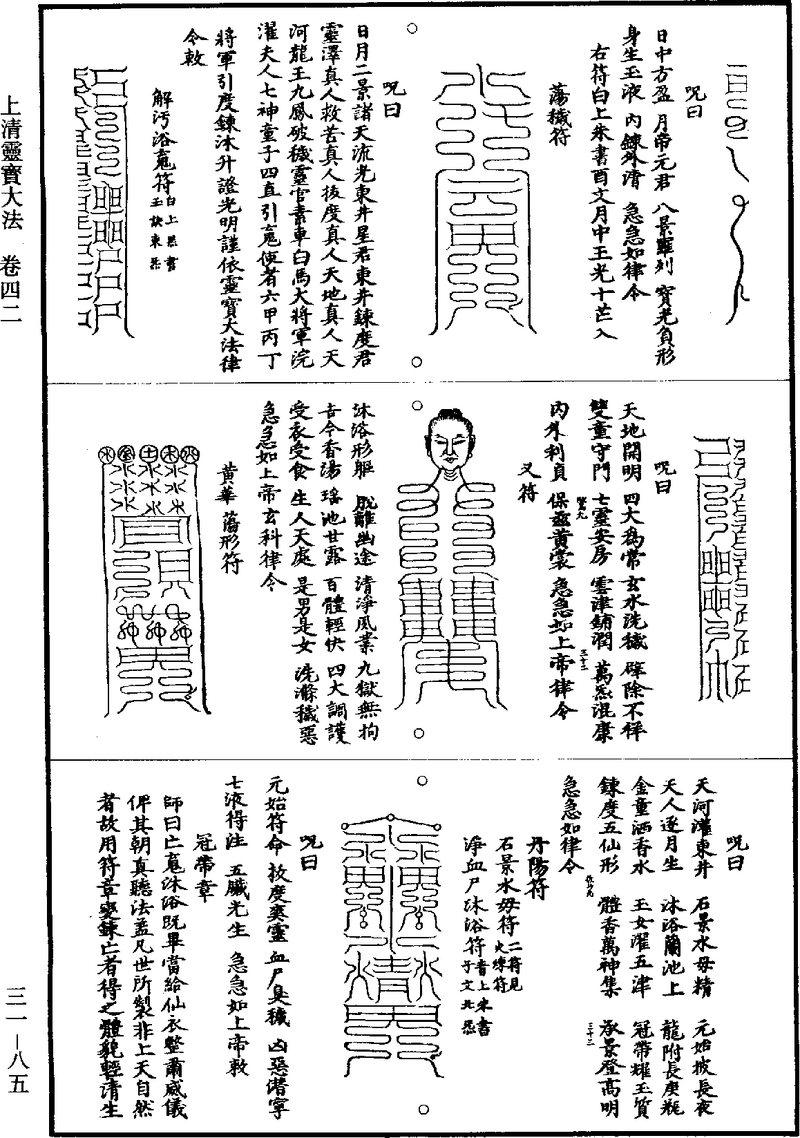 上清靈寶大法 卷四二
三一—八五
呪曰
日中方盈 月帝元君 八景羅列 寶光負形
身生玉液 內鍊外清 急急如律令
右符白上朱書酉文月中王光十芒入
蕩穢符
呪曰
日月二景諸天流光東井星君東井鍊度君
靈澤真人救苦真人拔度真人天地真人天
河龍王九鳳破穢靈官素車白馬大將軍浣
濯夫人七神童子四直引䰟使者六甲丙丁
將軍引度鍊沐升證光明謹依靈寶大法律
令敕
解污浴䰟符白上黑書
玉訣東炁
呪曰
天地開明 四大為常 玄水洗穢 辟除不祥
雙童守門 七靈安房 雲津鋪潤 萬炁混康
內外利貞 保茲黃裳 急急如上帝律令
又符
沐浴形軀 脫離幽途 清淨夙業 九獄無拘
古今香湯 瑤池甘露 百體輕快 四大調護
受衣受食 生人天處 是男是女 洗滌穢惡
急急如上帝玄科律令
黃華蕩形符
呪曰
天河灌東井 石景水母精 元始披長夜
天人逐月生 沐浴蘭池上 龍附長庚瓶
金童洒香水 玉女濯五津 冠帶耀玉質
鍊度五仙形 體香萬神集 承景登高明
急急如律令
丹陽符
石景水母符二符見
火鍊符
淨血尸沐浴符青上朱書
子文北炁
呪曰
元始符命 拔度爽靈 血尸臭穢 凶惡潛寧
七液得注 五臟光生 急急如上帝敕
冠帶章
師曰亡䰟沐浴既畢當給仙衣整肅威儀
俾其朝真聽法蓋凡世所製非上天自然
者故用符章變鍊亡者得之體貌輕清生